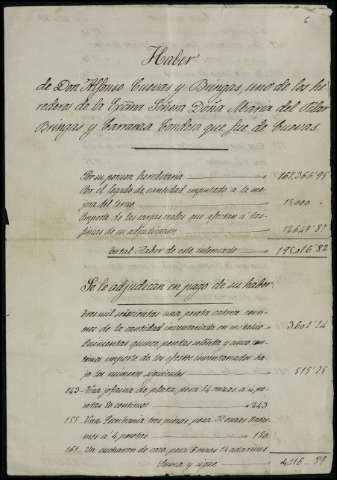 6
Haber
de Don Alfonso Cuevas y Bringas, uno de los he
rederos de la Excma Señora Doña Maria del Pilar
Bringas y Carranza Condesa que fue de Cuevas.
Por su porcion hereditaria
Por el legado de cantidad imputado a la me
jora del tercio 15000
Importe de las cargas reales que afectan a las
fincas de su adjudicacion
Total Haber de este interesado 195.016'82
Se le adjudican en pago de su haber.
Tres mil seiscientas una peseta catorce centi
mos de la cantidad inventariada en metalico 3.601'14
Quinientas quince pesetas
centimos importe de los efectos inventariados ba
jo los numeros siguientes 515'75
143 Una jofaina de plata, peso 54 onzas a 4 pe
setas 50 centimos 243
151 Una tres piezas, peso onzas
a 4 pesetas
161 Un cucharon de peso 8 onzas 14 adarmes
Suma y sigue 4.116